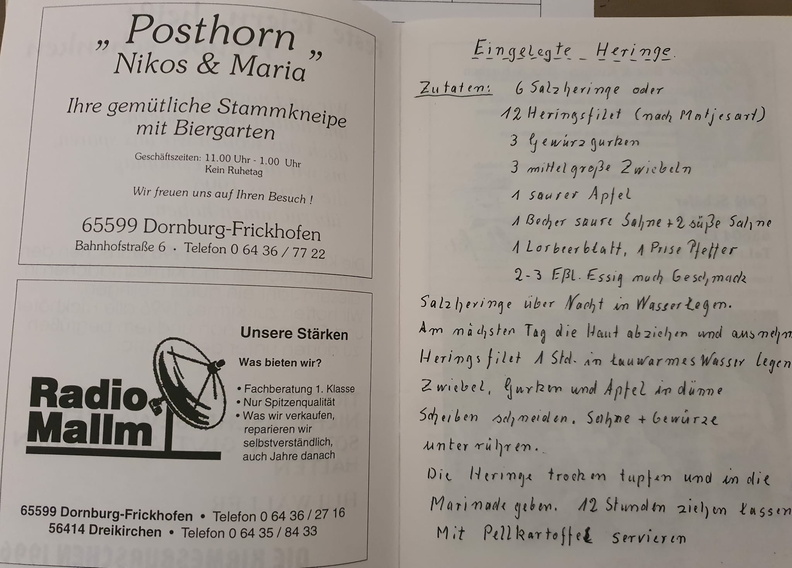 „ Posthorn „
Nikos & Maria
Ihre gemütliche Stammkneipe
mit Biergarten
Geschäftszeiten: 11.00 Uhr - 1.00 Uhr
Kein Ruhetag
Wir freuen uns auf Ihren Besuch !
65599 Dornburg-Frickhofen
Bahnhofstraße 6 · Telefon 0 64 36 / 77 22
Radio
Mallm
Unsere Stärken
Was bieten wir?
• Fachberatung 1. Klasse
• Nur Spitzenqualität
• Was wir verkaufen,
reparieren wir
selbstverständlich,
auch Jahre danach
65599 Dornburg-Frickhofen • Telefon 0 64 36 / 27 16
56414 Dreikirchen • Telefon 0 64 35 / 84 33
Eingelegte Heringe.
Zutaten: 6 Salzheringe oder
12 Heringsfilet (nach Matjesart)
3 Gewürzgurken
3 mittelgroße Zwiebeln
1 saurer Apfel
1 Becher saure Sahne + 2 süße Sahne
1 Lorbeerblatt, 1 Prise Pfeffer
2-3 Eßl. Essig nach Geschmack
Salzheringe über Nacht in Wasser legen.
Am nächsten Tag die Haut abziehen und ausnehm
Heringsfilet 1 Std. in lauwarmes Wasser legen
Zwiebel, Gurken und Apfel in dünne
Scheiben schneiden. Sahne + Gewürze
unterrühren.
Die Heringe trocken tupfen und in die
Marinade geben. 12 Stunden ziehen lassen
Mit Pellkartoffel servieren